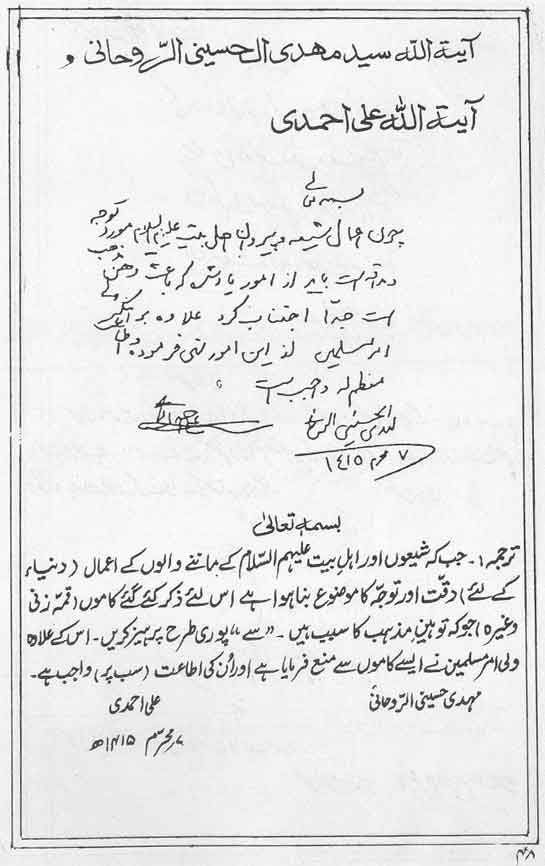 آیة اللہ سید مهدی الحسینی الرّوحانی و
آیة اللہ علی احمدی
بسمه تعالی
چون اعمال شیعه و پیروان اهل بیت علیهم السلام مورد توجه
و دقت است باید از امور یاد شده که باعث وهن مذهب
است جدّاً اجتناب کرد علاوه بر اینکه ولی
امر مسلمین از این امور نهی فرموده و اطاعت
معظم له واجب است
مهدی الحسینی الروحانی
علی احمدی
۷ محرم ۱۴۱۵
بسمہ تعالیٰ
ترجمہ :۔ جب کہ شیعوں اور اہل بیت علیہم السّلام کے ماننے والوں کے اعمال (دنیاء
کے لئے) دقّت اور توجّہ کا موضوع بنا ہوا ہے اس لئے ذکر کئے گئے کاموں (قمّہ زنی
وغیرہ) جو کہ توہینِ مذہب کا سبب ہیں ۔ ”سے“ پوری طرح پرہیز کریں ۔ اس کے علاوہ
ولی امر مسلمین نے ایسے کاموں سے منع فرمایا ہے اور اُن کی اطاعت (سب پر) واجب ہے۔
مہدی حسینی الرّوحانیؒ
علی احمدی
۷ محرّم ۱۴۱۵ھ
۴۸